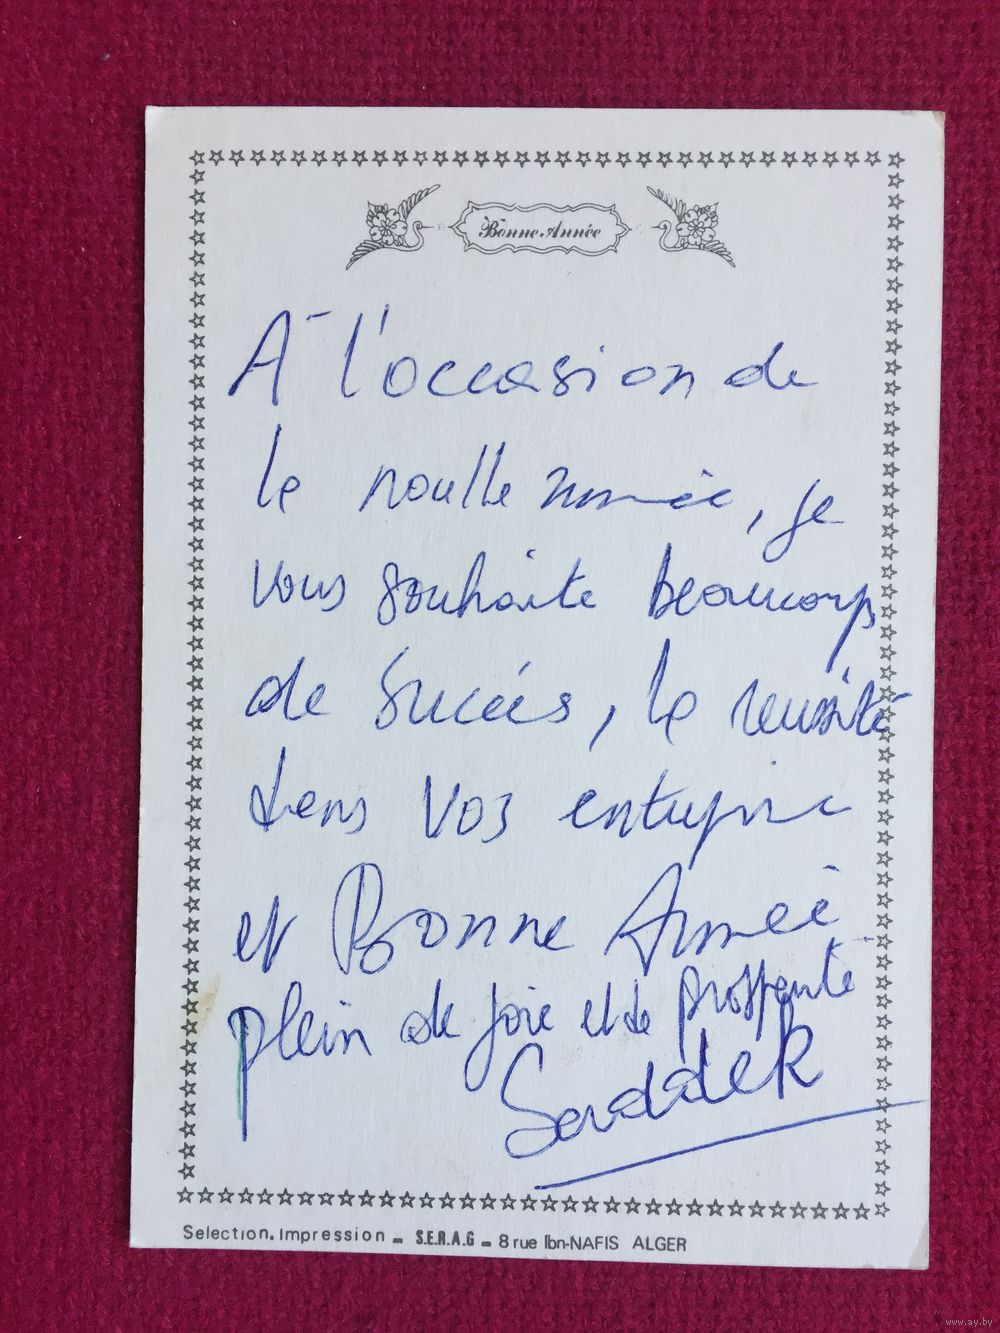 Bonne Année
A l'occasion de
le noulle année, je
vous souhaite beaucoup
de succès, le reussité
dans vos entreprise
et Bonne Année
plein de joie et de prosperité
Saddek
Selection. Impression - S.E.R.A.G - 8 rue Ibn-NAFIS ALGER
www.ay.by